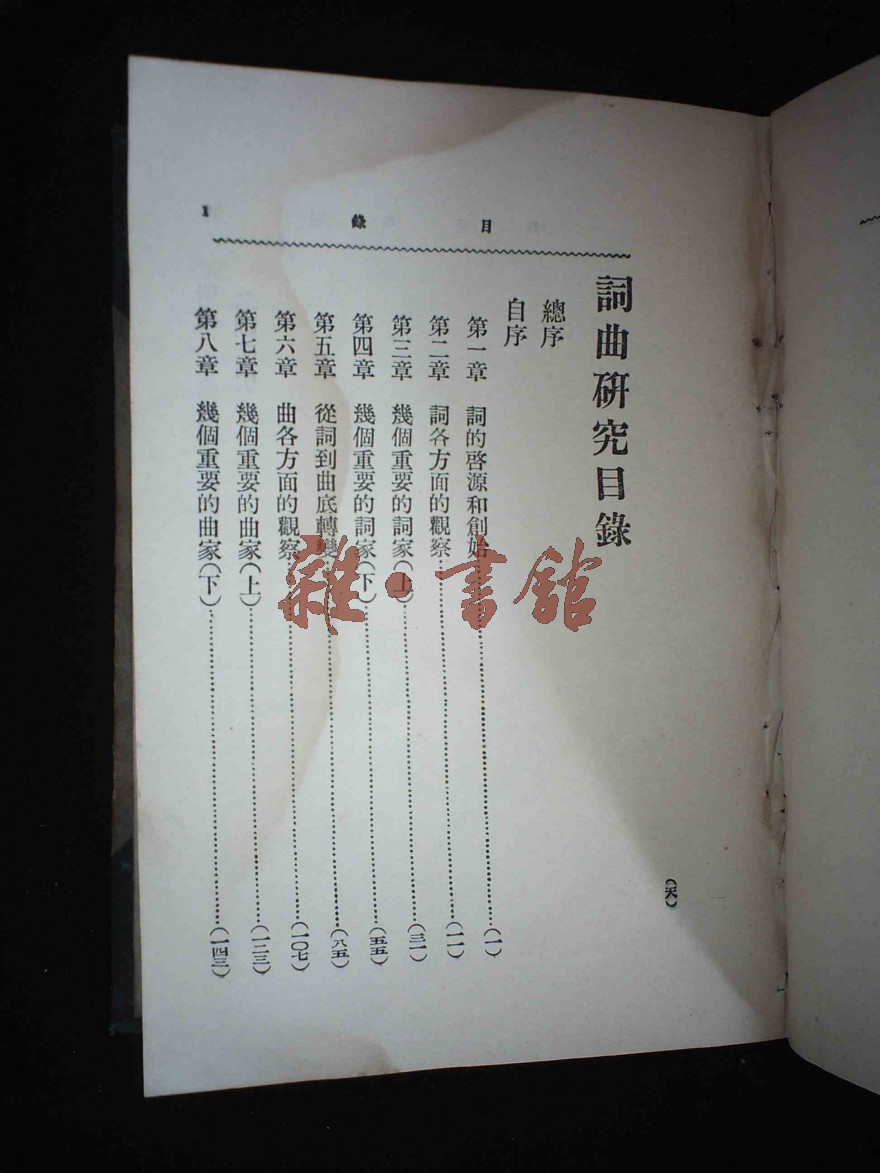 目錄
1
詞曲研究目錄
總序
自序
第一章 詞的啓源和創始……(一)
第二章 詞各方面的觀察……(一一)
第三章 幾個重要的詞家(上)……(三一)
第四章 幾個重要的詞家(下)……(五五)
第五章 從詞到曲底轉變……(八五)
第六章 曲各方面的觀察……(一〇七)
第七章 幾個重要的曲家(上)……(一二三)
第八章 幾個重要的曲家(下)……(一四三)
(天)
雜·書館